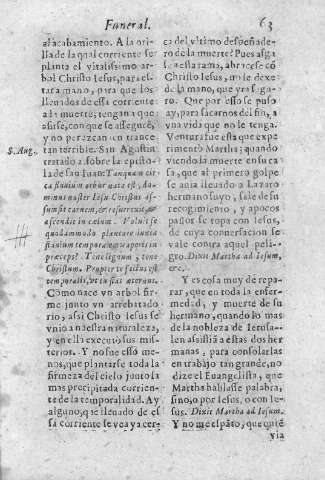 Funeral. 63
al acabamiento. A la ori-
lla de la qual corriente se
planta el vitalissimo ar-
bol Christo Iesus, para es-
tar a mano, para que los
llenados de essa corriente
a la muerte, tengan a que
asirse, con que se assegurẽ,
y no perezcan en trance
tan terrible. San Agustin
S. Aug.
tratado 2. sobre la episto-
la de san Iuan: Tanquam cir-
ca fluuium arbor nata est, do-
minus noster Iesu Christus as-
sumsit carnem, & resurrexit, &
ascendit in cœlum. Voluit se
quodammodo plantare iuxta
fluuium temporalem, raperis in
præceps? Tene lignum, tene
Christum. Propter te factus est
temporalis, vt tu fias æternus.
Como nace vn arbol fir-
me junto vn arrebatado
rio, assi Christo Iesus se
vnio a nuestra naturaleza,
y en ella executo sus mis-
terios. Y no fue esso me-
nos, que plantarse toda la
firmeza del cielo junto a la
mas precipitada corrien-
te de la temporalidad. Ay
alguno, que lleuado de es-
sa corriente se vee ya cer-
ca del vltimo despeñade-
ro de la muerte? Pues asga-
se a essa rama, abracese cõ
Christo Iesus, no le dexe
de la mano, que yrà segu-
ro. Que por esso se puso
ay, para sacarnos del fin, a
vna vida que no le tenga.
Ventura fue esta que expe-
rimentò Martha; quando
viendo la muerte en su ca-
sa, que al primer golpe
se auia lleuado a Lazaro
hermano suyo, sale de su
recogimiento, y a pocos
passos se topa con Iesus,
de cuya conuersacion se
vale contra aquel peli-
gro. Dixit Martha ad Iesum,
&c.
Y es cosa muy de repa-
rar, que en toda la enfer-
medad, y muerte de su
hermano, quando lo mas
de la nobleza de Ierusa-
len assistia a estas dos her
manas, para consolarlas
en trabajo tan grande, no
dize el Euangelista, que
Martha hablasse palabra,
sino, o por Iesus, o con Ie-
sus. Dixit Martha ad Iesum.
Y no me espãto, que quiẽ
via